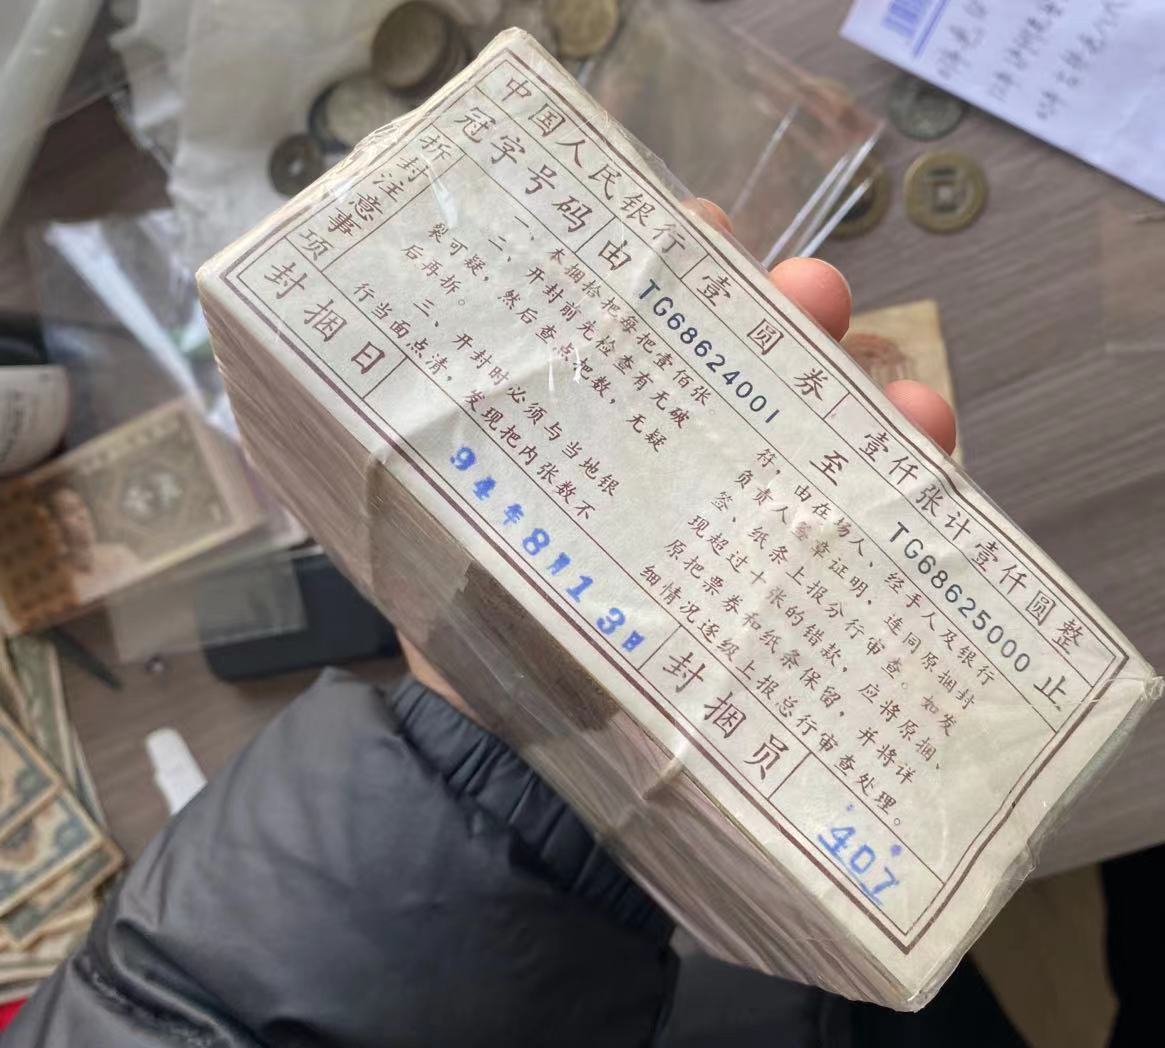 中国人民银行 壹圆券 壹仟张计壹仟圆整
冠字号码 由 TG68624001 至 TG68625000 止
拆封注意事项
一、本捆拾把每把壹佰张。
二、开封前先检查有无破
裂可疑，然后查点把数，无疑
后再拆。
三、开封时必须与当地银
行当面点清，发现把内张数不
符，由在场人、经手人及银行
负责人签章证明，连同原捆封
签、纸条上报分行审查。如发
现超过十张的错款，应将原捆、
原把票券和纸条保留，并将详
细情况逐级上报总行审查处理。
封捆日 94年8月13日 封捆员 407